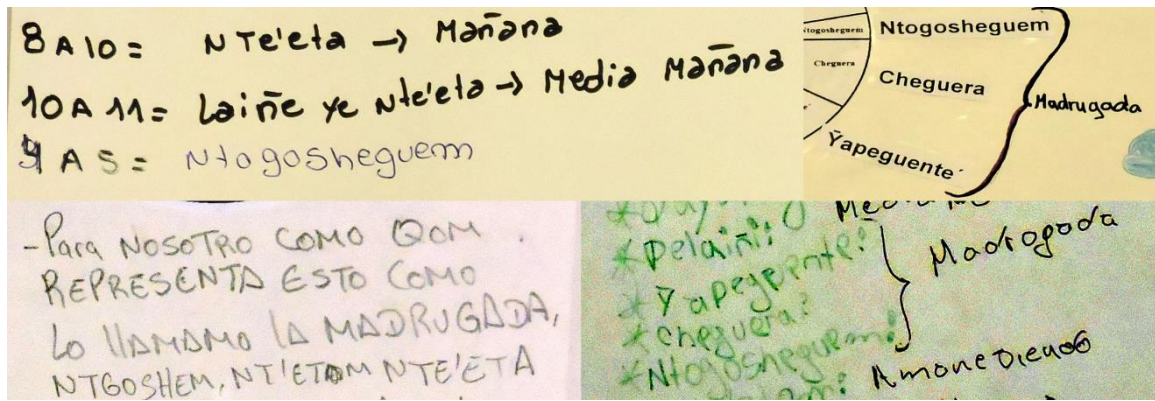 8 A 10 = NTe'eta → Mañana
10 A 11 = Laiñe ye Nte'eta → Media Mañana
4 A 5 = Ntogosheguem
Ntogosheguem
Cheguera
Ntogosheguem
Cheguera
Ỹapeguente'
Madrugada
-Para NOSOTRO COMO QOM.
REPRESENTA ESTO COMO
LO llAMAMO LA MADRUGADA,
NTGOSHEM, NT'ETOM NTE'ETA
*Pelaiñi:
*Ỹapeguente:
*cheguera:
*Ntogosheguem:
Madrogada